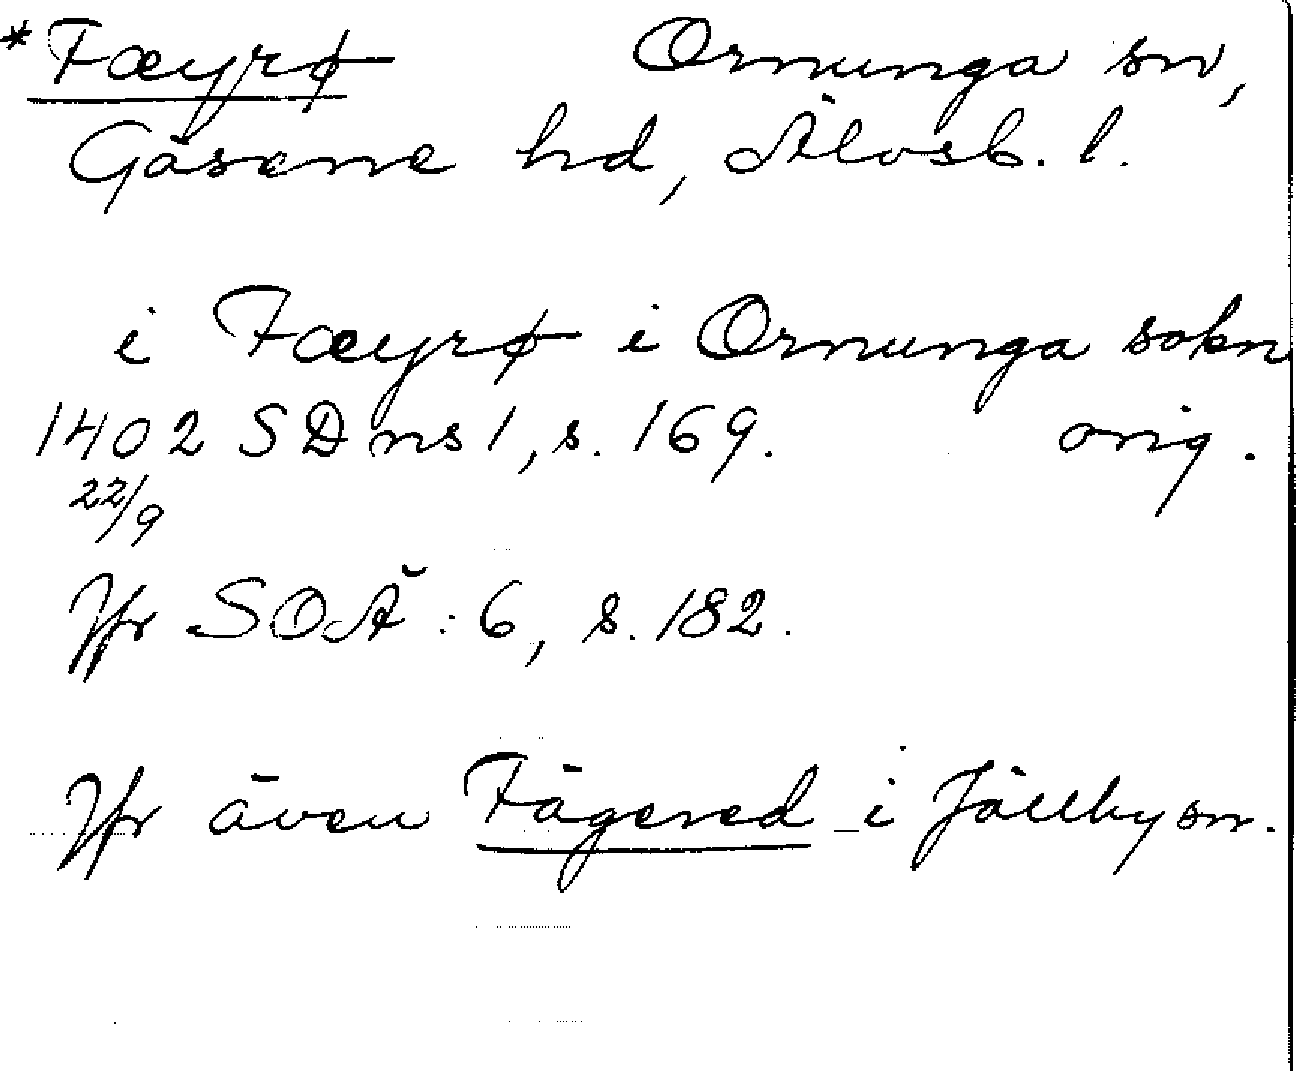 *Fæyrø Ornunga sn,
Gäsene hd, Älvsb. l.
i Fæyrø i Ornunga sokn
1402 SD ns 1, s. 169. orig.
22/9
Jfr SOÄ: 6, s. 182.
Jfr även Fägered i Jällby sn.